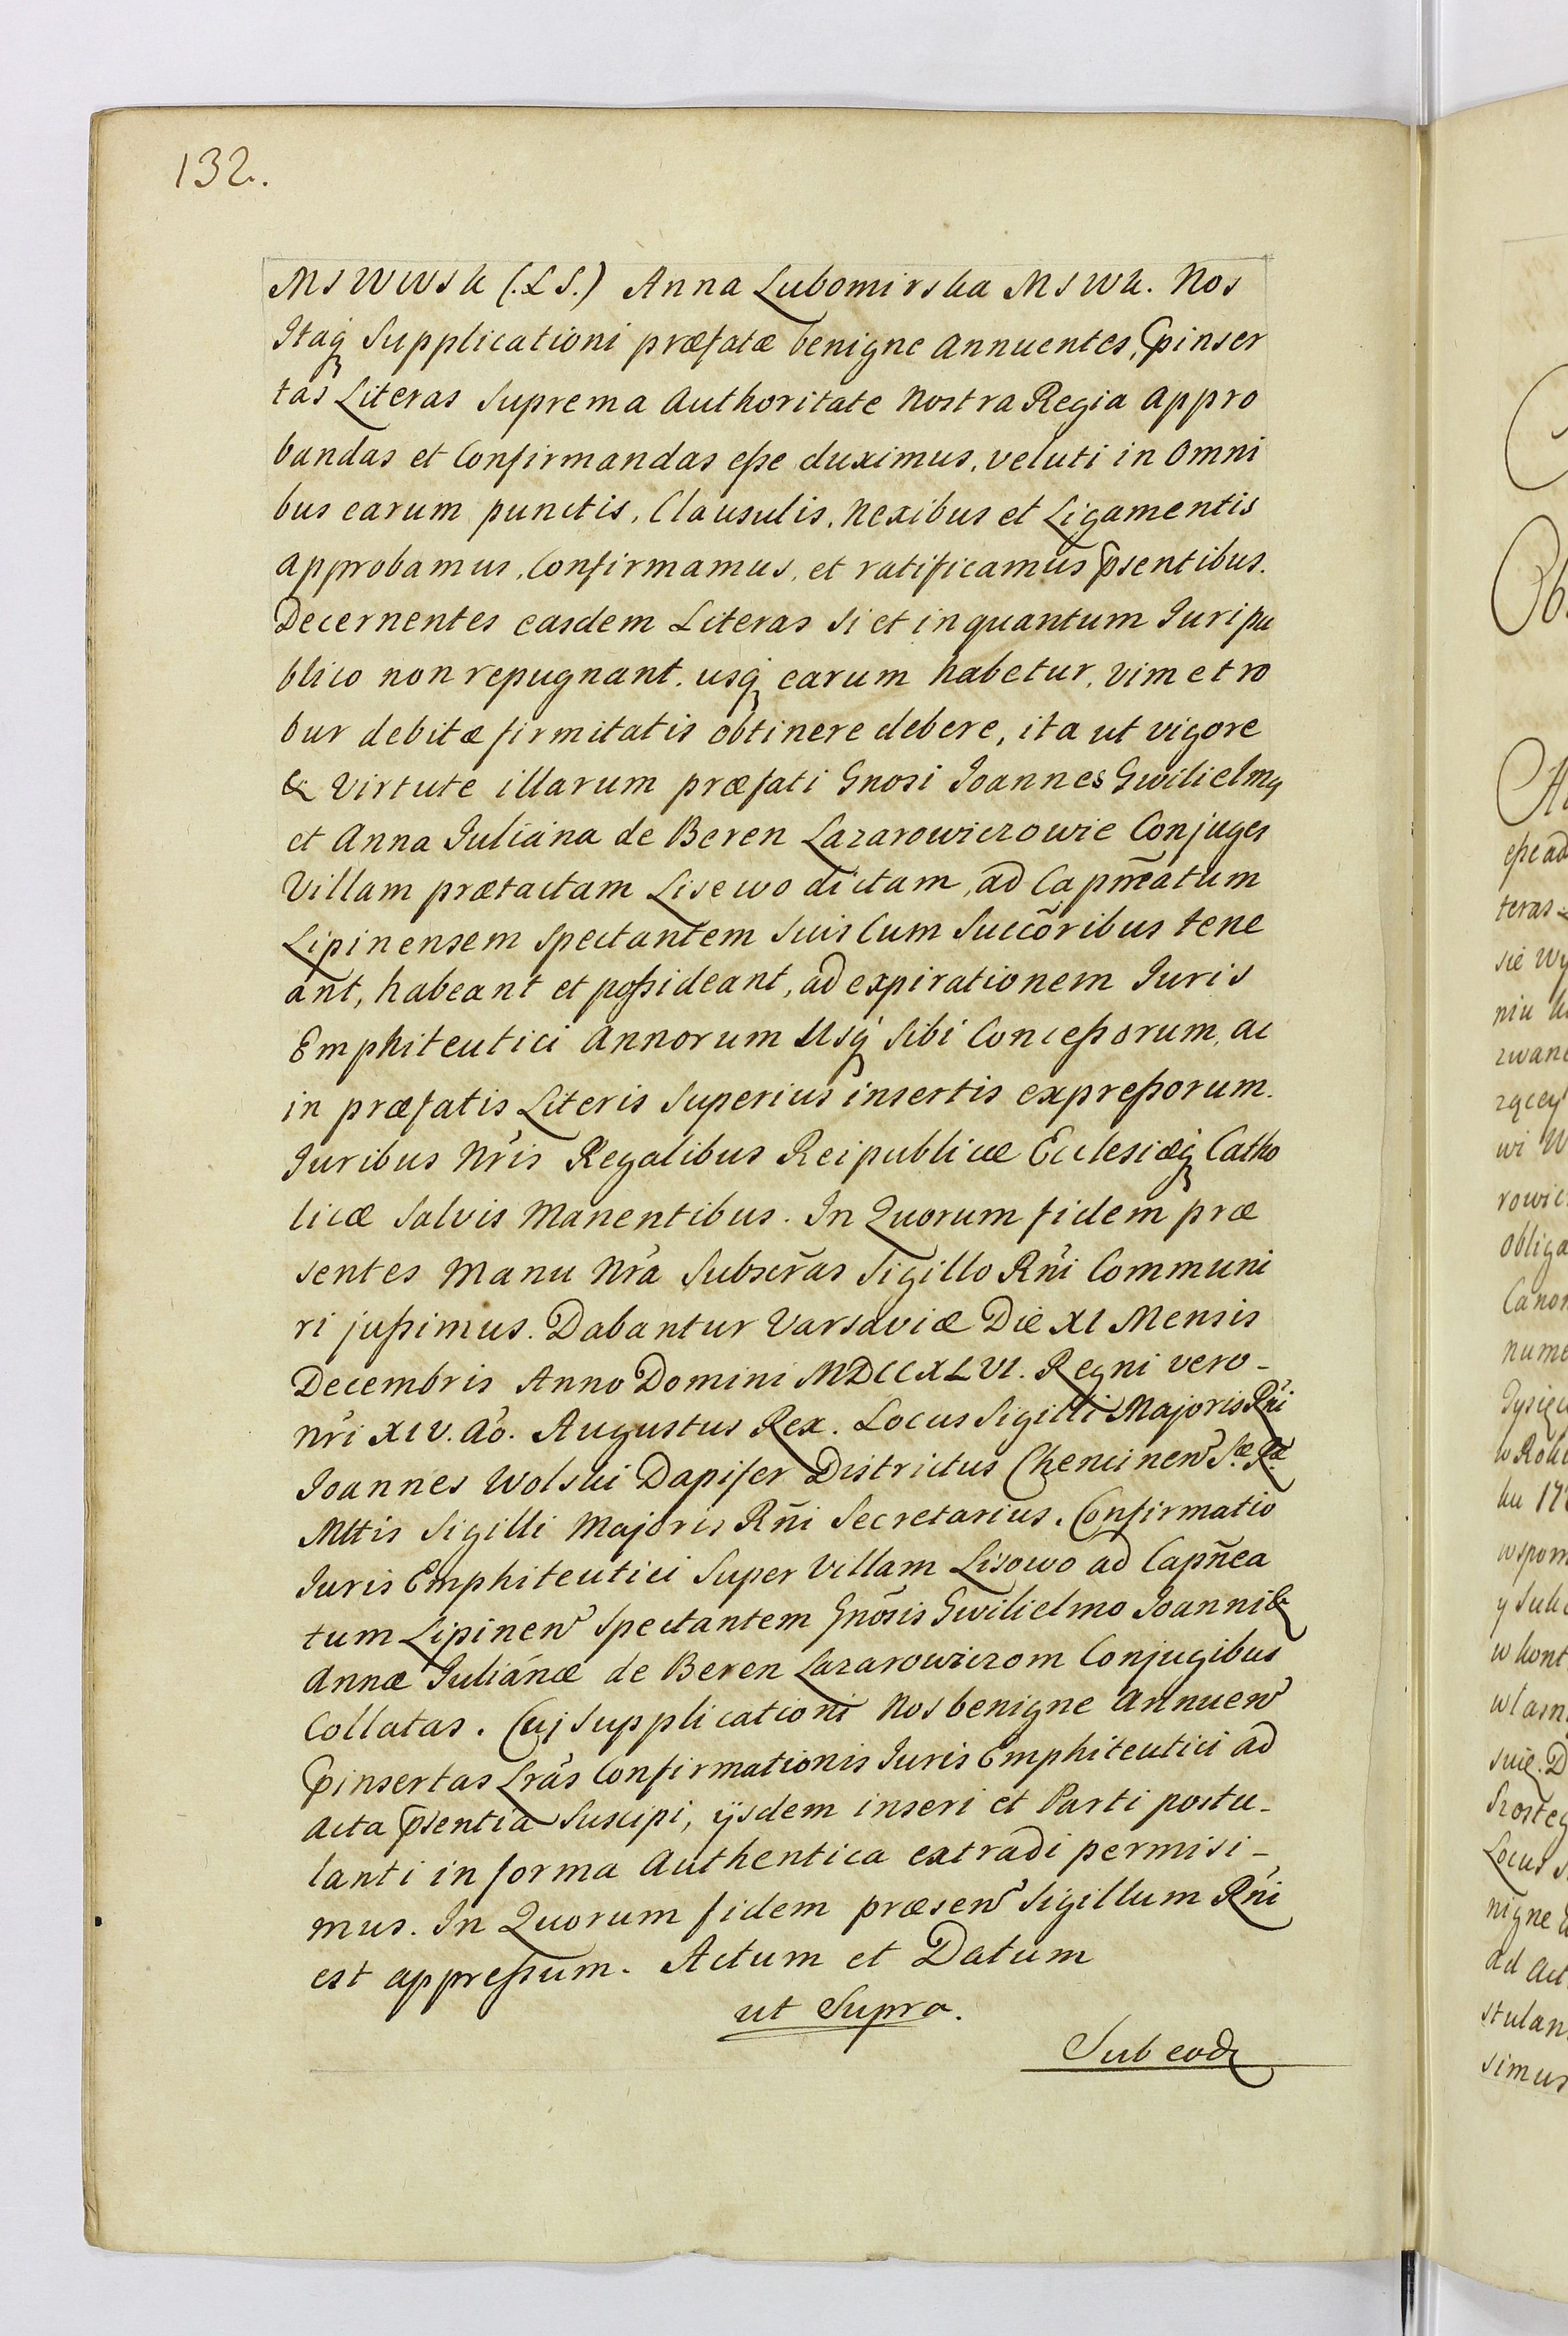 132.
MSWWSk (.LS.) Anna Lubomirska MSWk. Nos
Itaq̨ Supplicationi præfatæ benigne Annuentes, p̄inser
tas Literas Suprema Authoritate Nostra Regia Appro
bandas et Confirmandas eſse duximus, veluti in Omni
bus earum punctis, Clausulis, Nexibus et Ligamentis
approbamus, Confirmamus, et ratificamus p̄sentibus.
Decernentes easdem Literas Si et inquantum Juri pu
blico non repugnant. usq̨ earum habetur, vim et ro
bur debitæ firmitatis obtinere debere, ita ut vigore
& Virtute illarum præfati Gnosi Joannes Gwilielmq
et Anna Juliana de Beren Lazarowiczowie Conjuges
Villam prætactam Lisewo dictam, ad Capn̄eatum
Lipinensem Spectantem Suis Cum Succōribus tene
ant, habeant et poſsideant, ad expirationem Juris
Emphiteutici Annorum Usq̨ Sibi Conceſsorum, ac
in præfatis Literis Superius insertis expreſsorum.
Juribus Nr̄is Regalibus Reipublicæ Ecclesiæq̨ Catho
licæ Salvis Manentibus. In Quorum fidem præ
sentes Manu Nr̄a Subscr̄as Sigillo Rn̄i Communi
ri juſsimus. Dabantur Varsaviæ Die XI Mensis
Decembris Anno Domini MDCCXLVI. Regni vero-
Nr̄i XIV. Aō. Augustus Rex. Locus Sigilli Majoris Rn̄i
Joannes Wolski Dapifer Districtus Chencinen̄ S.æ R.æ
Mttis Sigilli Majoris Rn̄i Secretarius. Confirmatio
Juris Emphiteutici Super Villam Lisowo ad Capn̄ea
tum Lipinen̄ Spectantem Gnōsis Gwilielmo Joanni &
Annæ Julianæ de Beren Lazarowiczom Conjugibus
Collatas. Cuj Supplicationi Nos benigne Annuen̄
p̄insertas Lr̄as Confirmationis Juris Emphiteutici ad
Acta p̄sentia Suscipi, ijsdem inseri et Parti postu-
lanti in forma Authentica extradi permisi-
mus. In Quorum fidem præsen̄ Sigillum Rn̄i
est appreſsum. Actum et Datum
ut Supra.
Sub eod